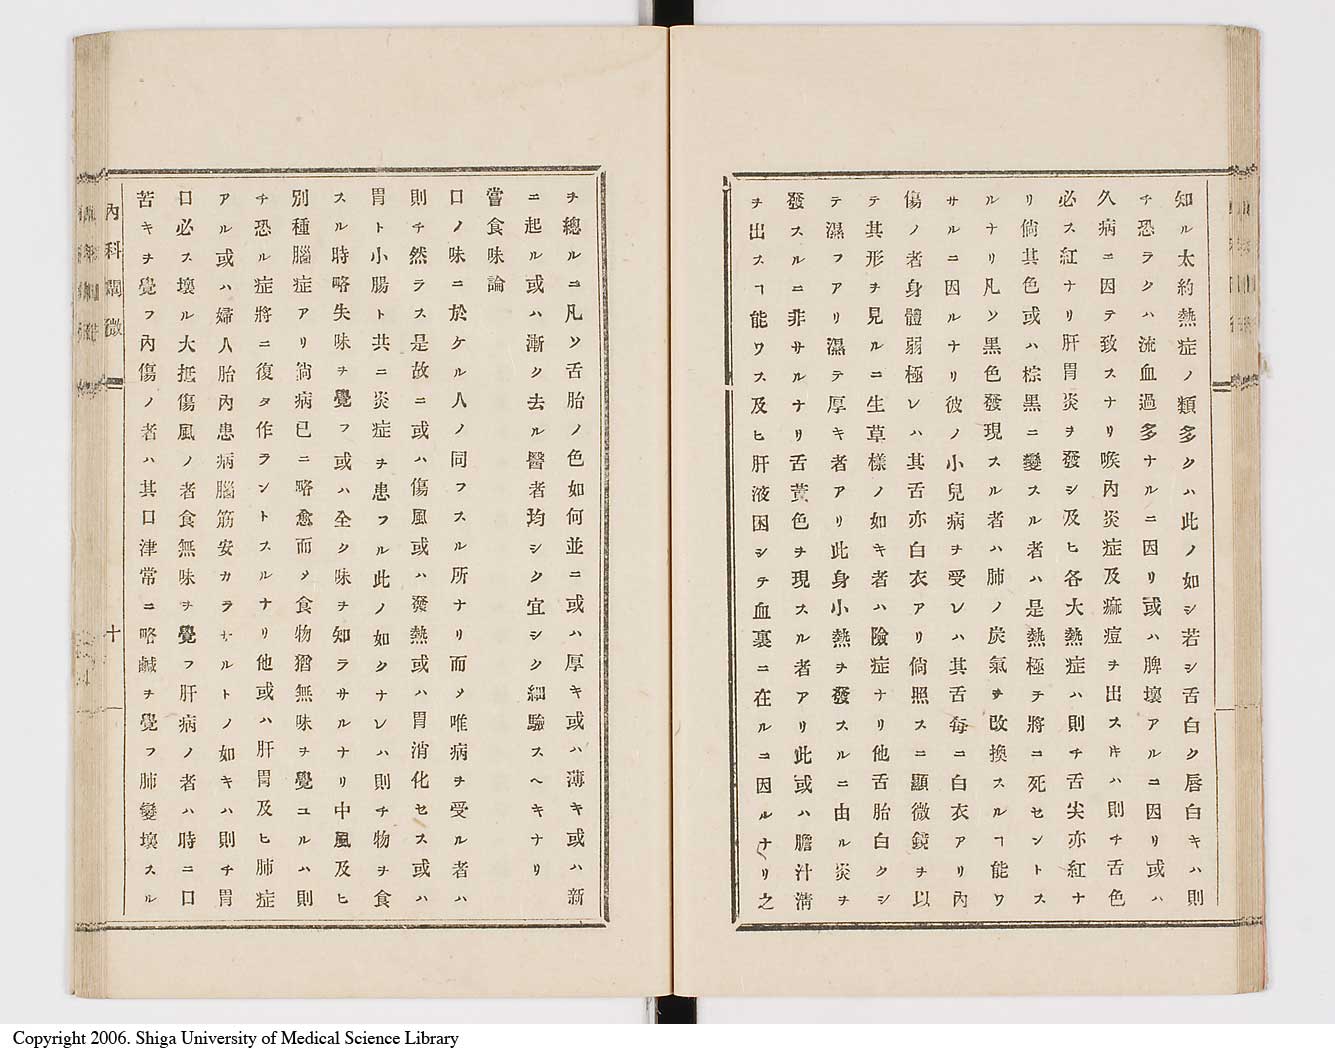 知ル太約熱症ノ類多クハ此ノ如シ若シ舌白ク唇白キハ則
チ恐ラクハ流血過多ナルニ因リ或ハ脾壞アルニ因リ或ハ
久病ニ因テ致スナリ喉內炎症及痲痘ヲ出スキハ則チ舌色
必ス紅ナリ肝胃炎ヲ發シ及ヒ各大熱症ハ則チ舌尖亦紅ナ
リ倘其色或ハ棕黑ニ變スル者ハ是熱極テ將ニ死セントス
ルナリ凡ソ黑色發現スル者ハ肺ノ炭氣ヲ改換スルヿ能ワ
サルニ因ルナリ彼ノ小兒病ヲ受レハ其舌每ニ白衣アリ內
傷ノ者身體弱極レハ其舌亦白衣アリ倘照スニ顯微鏡ヲ以
テ其形ヲ見ルニ生草樣ノ如キ者ハ險症ナリ他舌胎白クシ
テ濕フアリ濕テ厚キ者アリ此身小熱ヲ發スルニ由ル炎ヲ
發スルニ非サルナリ舌黃色ヲ現スル者アリ此或ハ膽汁淸
ヲ出スヿ能ワス及ヒ肝液困シテ血裏ニ在ルニ因ルナリ之
ヲ總ルニ凡ソ舌胎ノ色如何並ニ或ハ厚キ或ハ薄キ或ハ新
ニ起ル或ハ漸ク去ル醫者均シク宜シク細驗スヘキナリ
嘗食味論
口ノ味ニ於ケル人ノ同フスル所ナリ而メ唯病ヲ受ル者ハ
則チ然ラス是故ニ或ハ傷風或ハ發熱或ハ胃消化セス或ハ
胃ト小腸ト共ニ炎症ヲ患フル此ノ如クナレハ則チ物ヲ食
スル時略失味ヲ覺フ或ハ全ク味ヲ知ラサルナリ中風及ヒ
別種腦症アリ倘病已ニ略愈而メ食物猶無味ヲ覺ユルハ則
チ恐ル症將ニ復タ作ラントスルナリ他或ハ肝胃及ヒ肺症
アル或ハ婦人胎內患病腦筋安カラサルトノ如キハ則チ胃
口必ス壞ル大抵傷風ノ者食無味ヲ覺フ肝病ノ者ハ時ニ口
苦キヲ覺フ內傷ノ者ハ其口津常ニ略鹹ヲ覺フ肺變壞スル
內科闡微
十